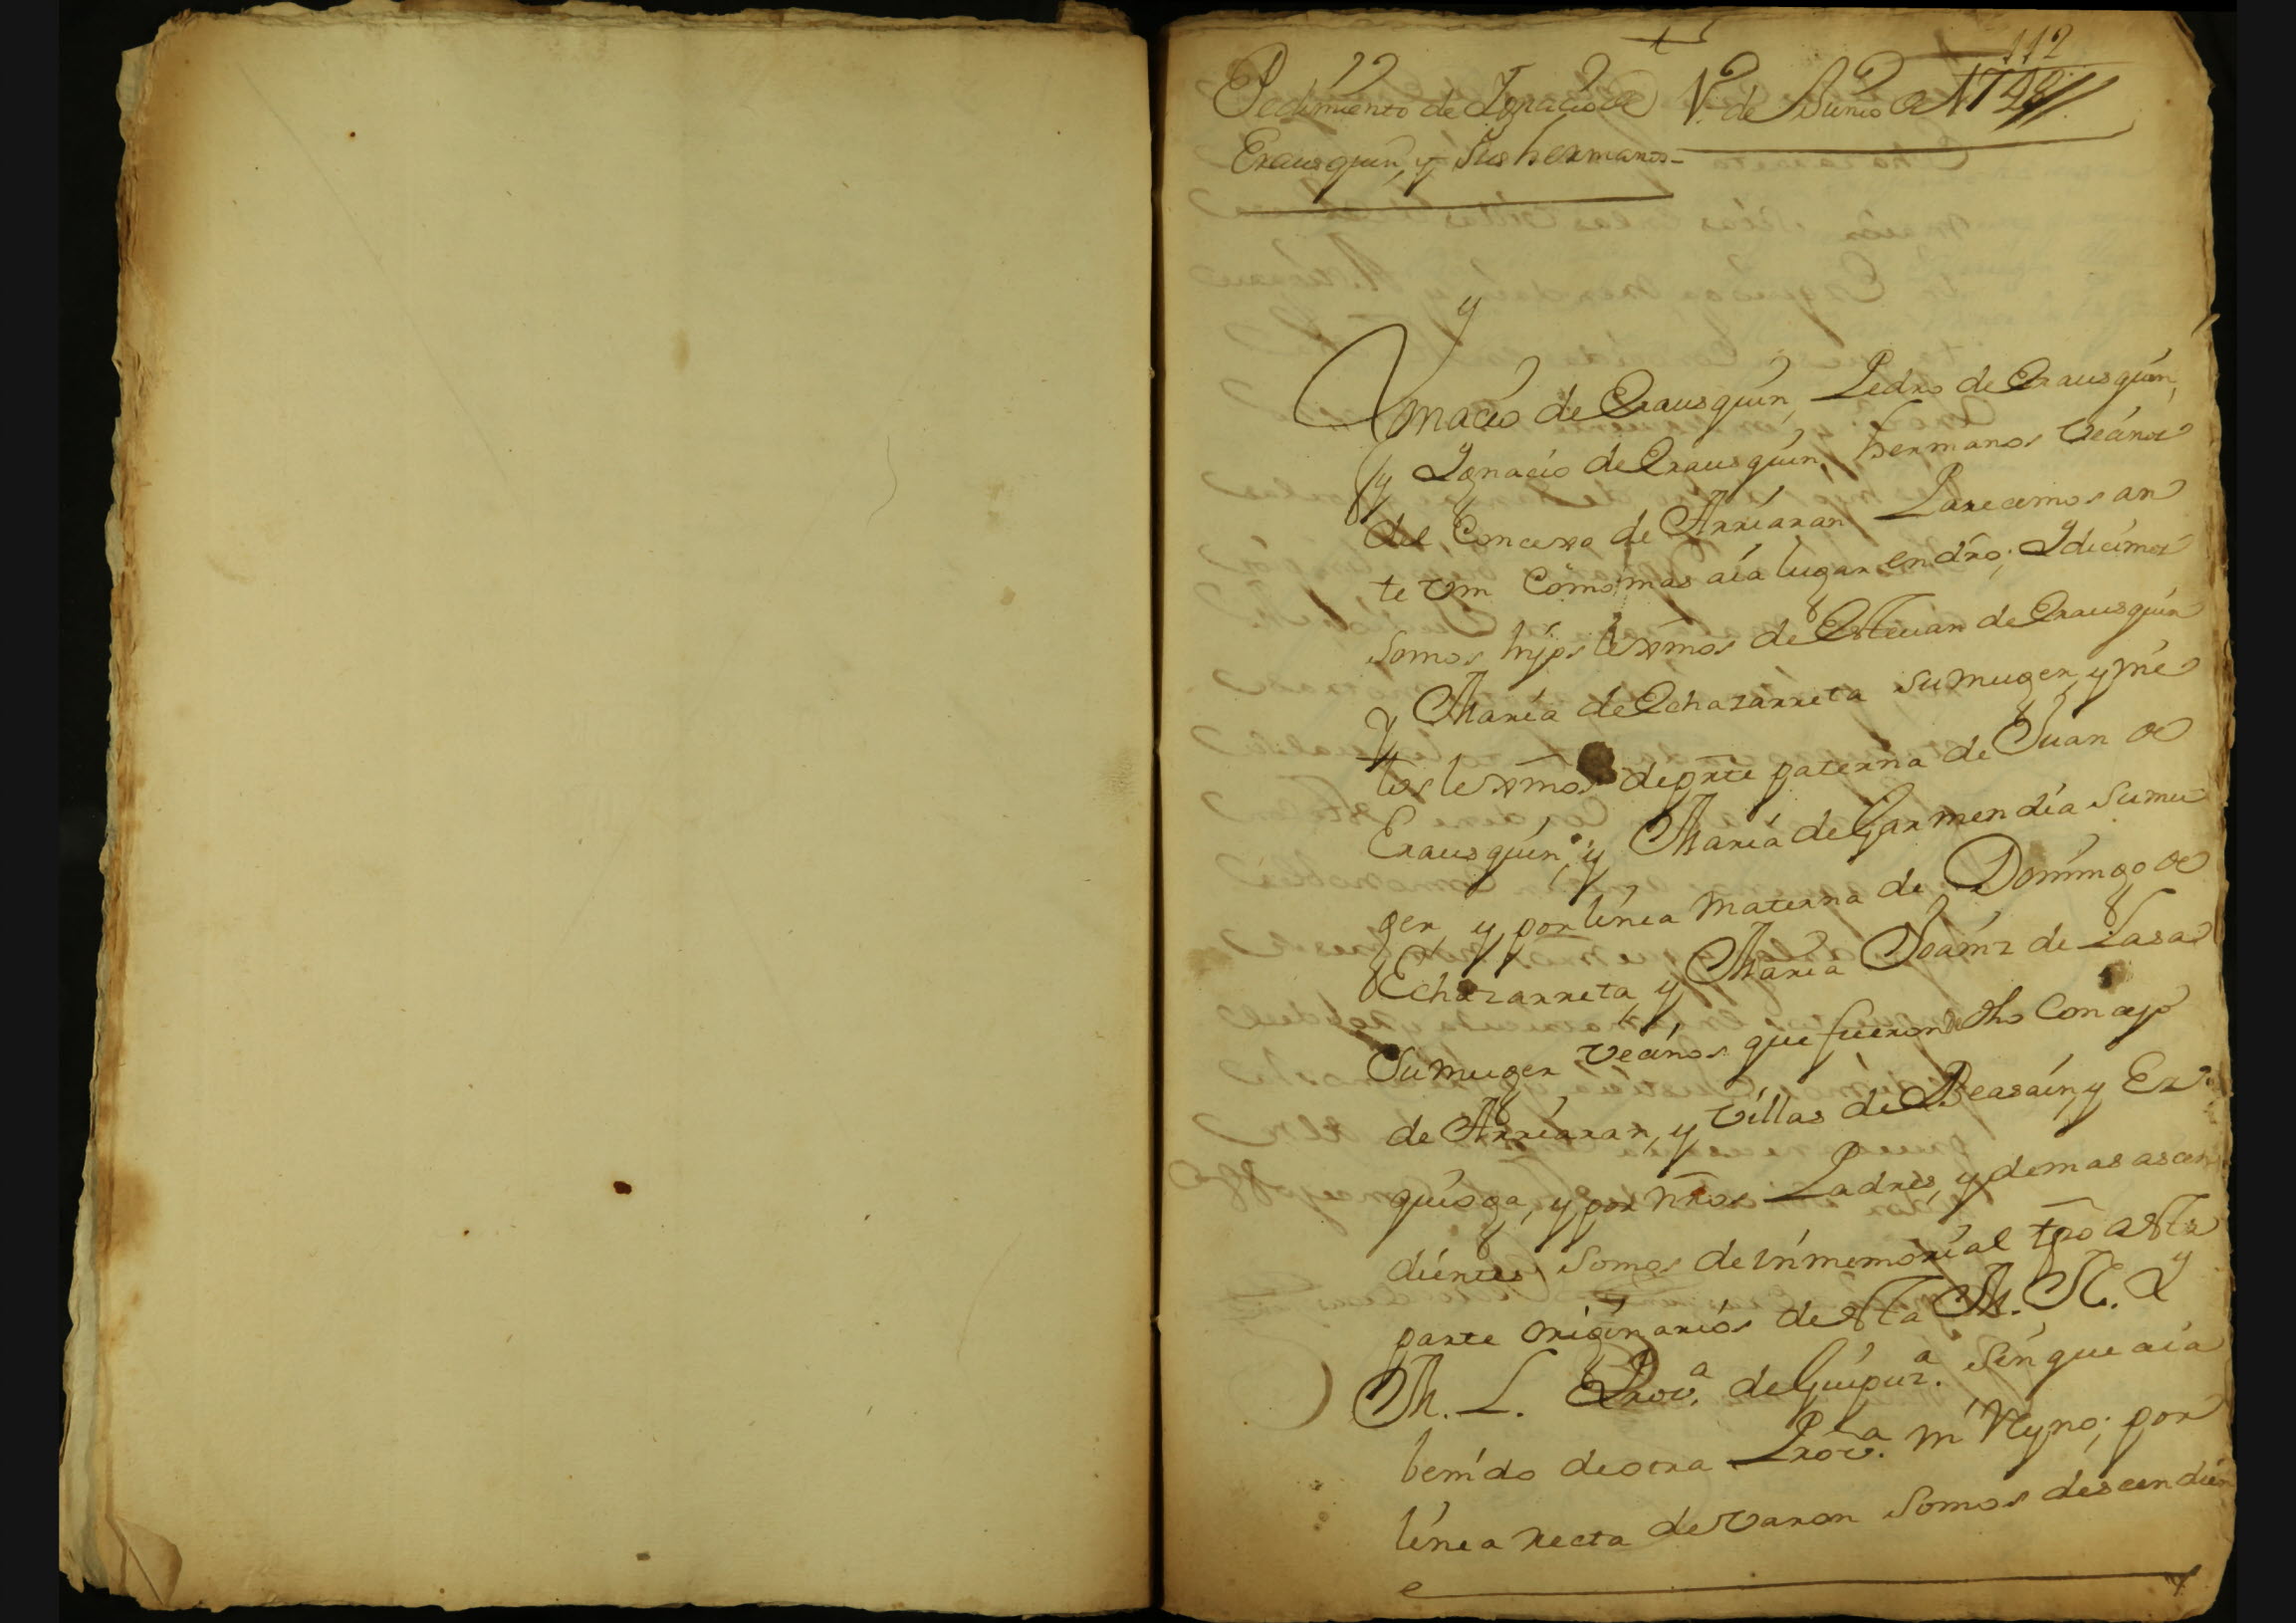 112
Pedimiento de Ignacio de
Erausquin, y Sus hermanos-
de Junio de 1748
Ygnacio de Erausquin, Pedro de Erausquin,
y Ygnacio de Erausquin, hermanos Vecinos
del Concexo de Arriaran Parecemos an
te Vm Como mas aia lugar en dro; Y decimos
Somos hijos lexmos de Estevan de Erausquin
y Maria de Echazarreta Su muger, y nie
tos lexmos de prte paterna de Juan de
Erausquin, y Maria de Garmendia Su mu
ger, y por linea Materna de Domingo de
Echazarreta, y Maria Joaniz de Lasa
Su muger Vecinos que fueron de dho Concejo
de Arriaran, y Villas de Beasain, y Ez
quioga, y por nros Padres, y demas ascen
dientes Somos de inmemorial tpo a esta
parte originarios de esta M. N. Y
M. L. Prov.a de Guipuz.a Sin que aia
benido de otra Prov.a ni Reyno; por
linea recta de Varon Somos descendien